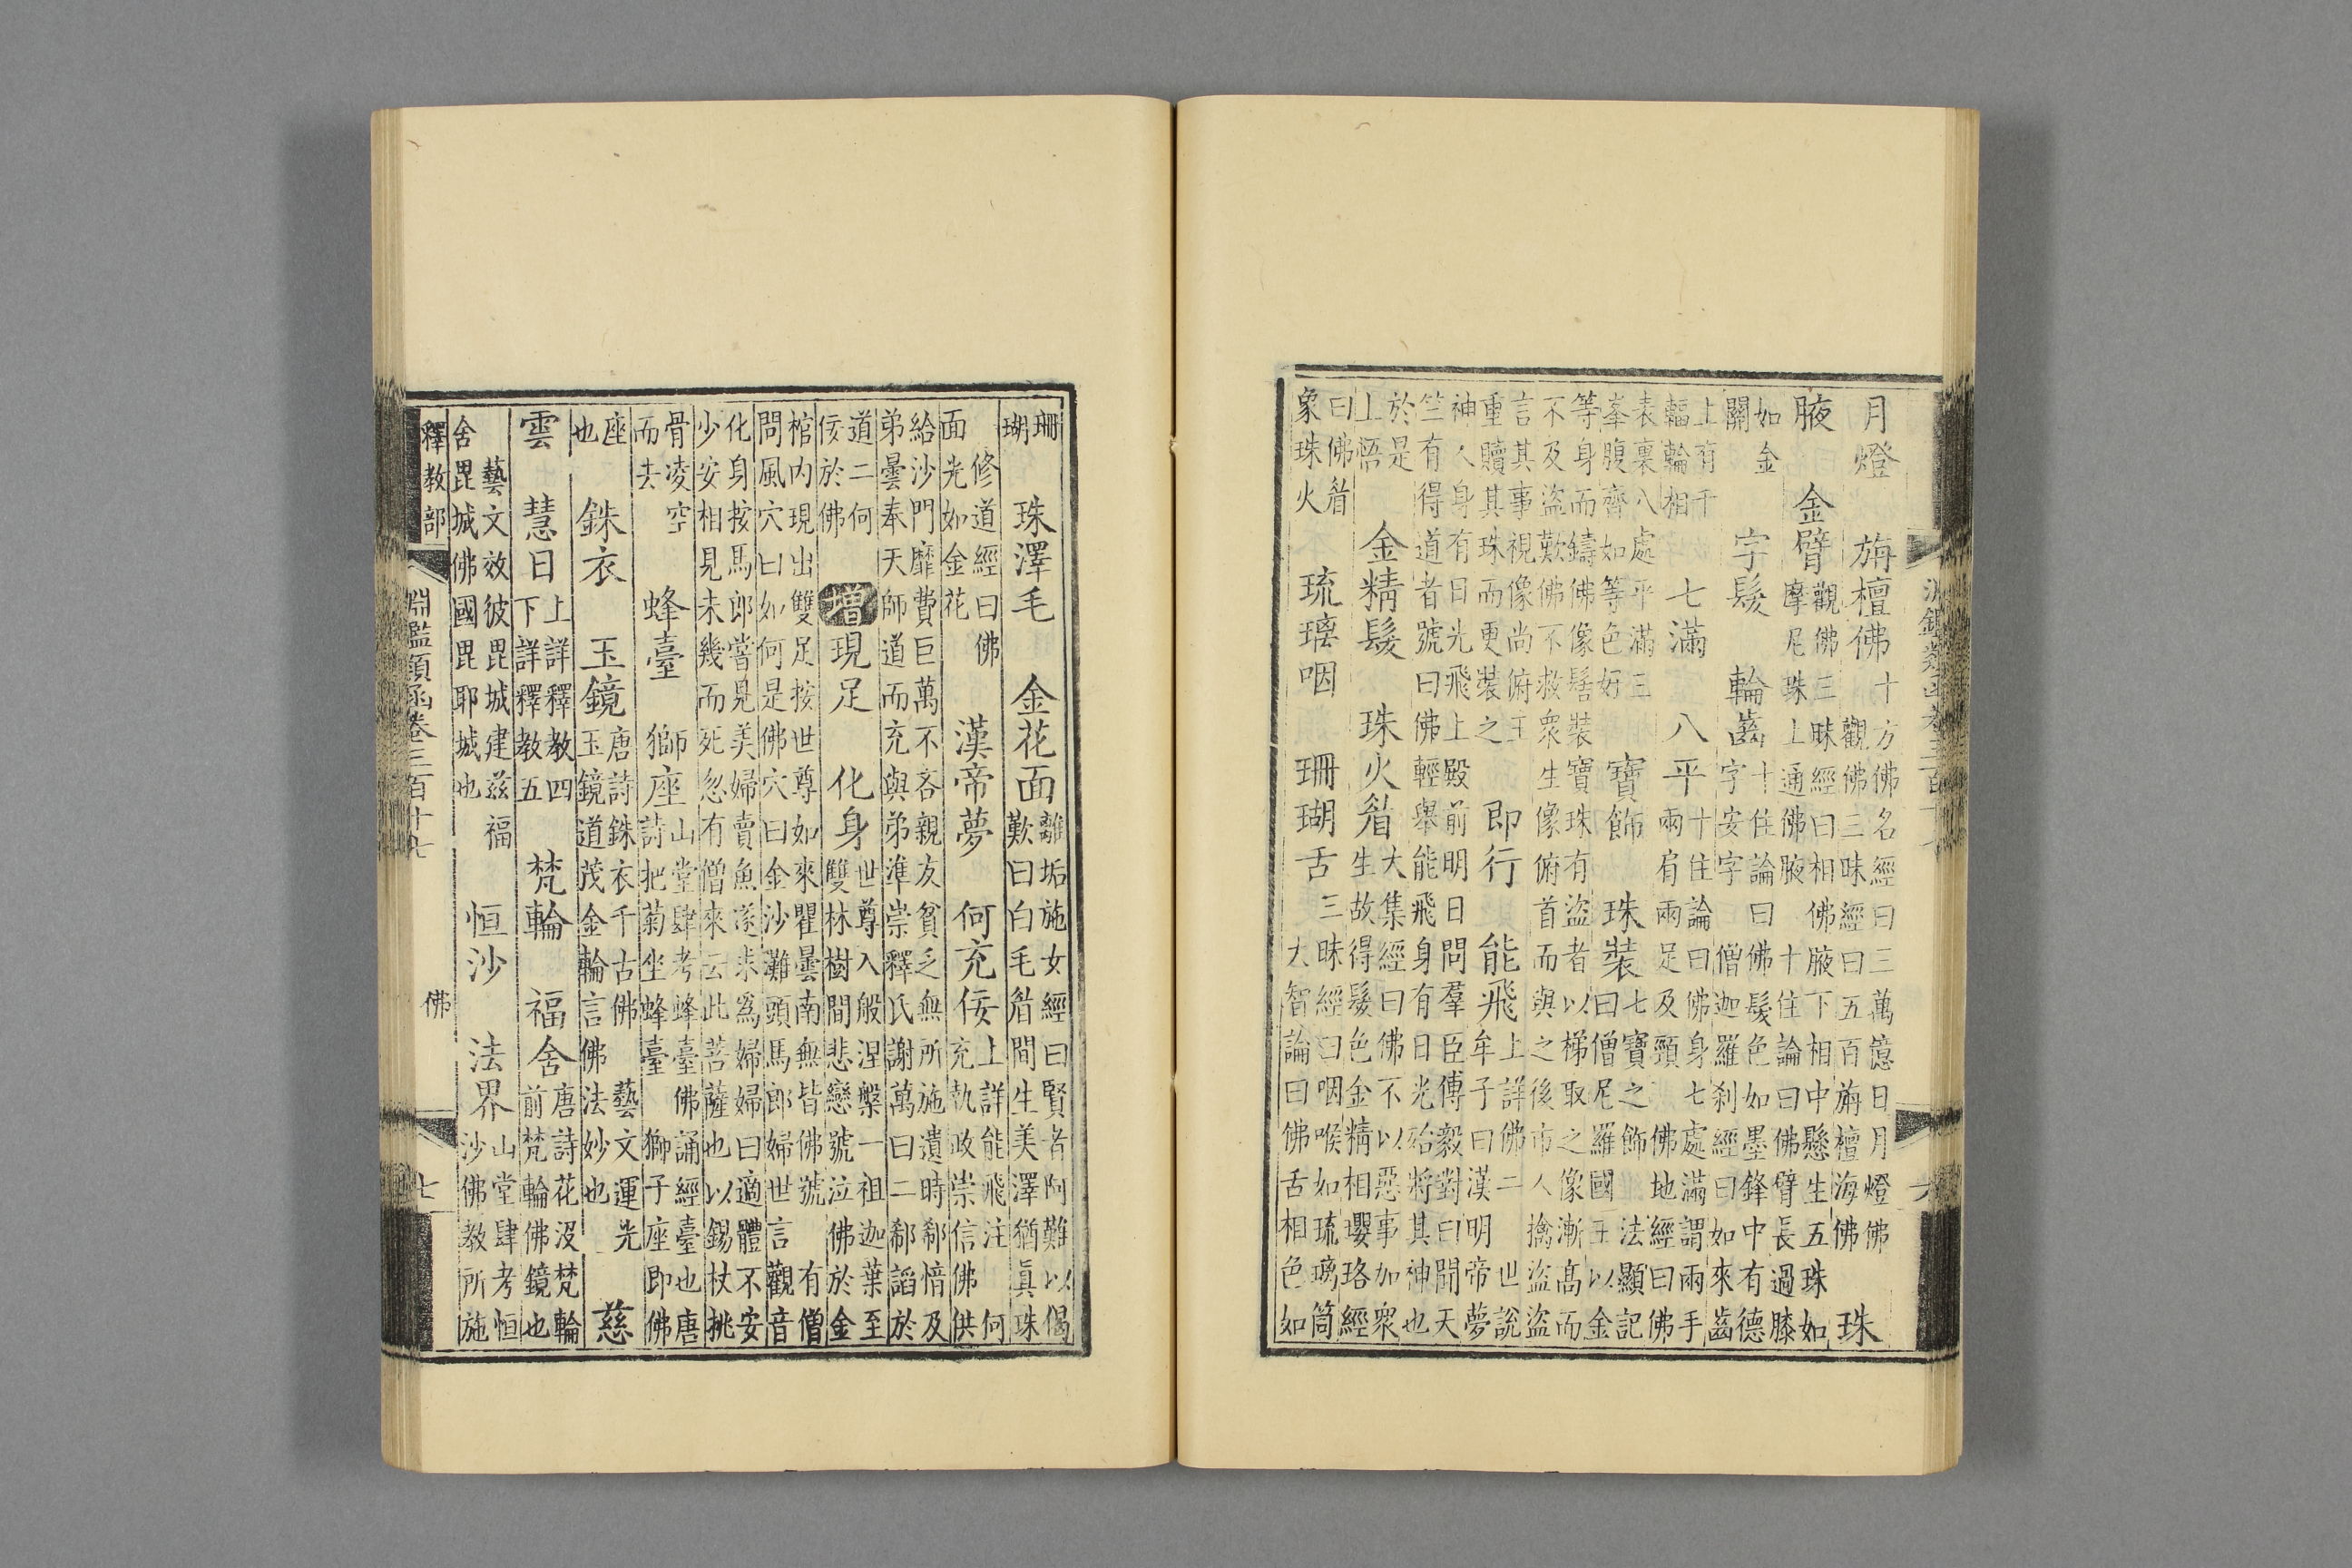 月燈　旃檀佛　十方佛名經曰三萬億日月燈佛
觀佛三昧經曰五百旃檀海佛　珠
腋　金臂　觀佛三昧經曰相佛腋下相中懸生五珠如
摩尼珠上通佛腋　十住論曰佛臂長過膝
如金
關　字髮　輪齒　十住論曰佛髮色如墨鋒中有德
字安字　僧迦羅刹經曰如來齒
上有千
輻輪相　七滿　八平　十住論曰佛身七處滿謂兩手
兩肩兩足及頸　佛地經曰佛
表裏八處平滿三
峯腹齊如等色好　寶飾　珠裝　七寶之飾　法顯記
曰僧尼羅國王以金
等身而鑄佛像髻裝寶珠有盜者以梯取之像漸高而
不及盜歎佛不救衆生像俯首而與之後市人擒盜盜
言其事視像尚俯王
重贖其珠而更裝之　即行　能飛　上詳佛二　世說
牟子曰漢明帝夢
神人身有日光飛上殿前明日問羣臣傅毅對曰聞天
竺有得道者號曰佛輕舉能飛身有日光殆將其神也
於是
上悟　金精髮　珠火眉　大集經曰佛不以惡事加衆
生故得髮色金精相瓔珞經
曰佛眉
象珠火　琉璃咽　珊瑚舌　三昧經曰咽喉如琉璃筒
大智論曰佛舌相色如
珊
瑚　珠澤毛　金花面　離垢施女經曰賢者阿難以偈
歎曰白毛眉間生美澤猶眞珠
修道經曰佛
面光如金花　漢帝夢　何充佞　上詳能飛注　何
充執政崇信佛供
給沙門靡費巨萬不吝親友貧乏無所施遺時郗愔及
弟曇奉天師道而充與弟準崇釋氏謝萬曰二郗諂於
道二何
佞於佛　增　現足　化身　世尊入般涅槃一祖迦葉至
雙林樹間悲戀號泣佛於金
棺内現出雙足按世尊如來瞿曇南無皆佛號　有僧
問風穴曰如何是佛穴曰金沙灘頭馬郎婦世言觀音
化身按馬郎嘗見美婦賣魚遂求爲婦婦曰適體不安
少安相見未幾而死忽有僧來云此菩薩也以錫杖挑
骨凌空
而去　蜂臺　獅座　山堂肆考蜂臺佛誦經臺也唐
詩把菊坐蜂臺　獅子座即佛
座
也　銖衣　玉鏡　唐詩銖衣千古佛　藝文運光
玉鏡道茂金輪言佛法妙也　慈
雲　慧日　上詳釋教四
下詳釋教五　梵輪　福舍　唐詩花沒梵輪
前梵輪佛鏡也
藝文效彼毘城建茲福
舍毘城佛國毘耶城也　恒沙　法界　山堂肆考恒
沙佛教所施
釋教部　淵鑑類函卷三百十七　佛　七